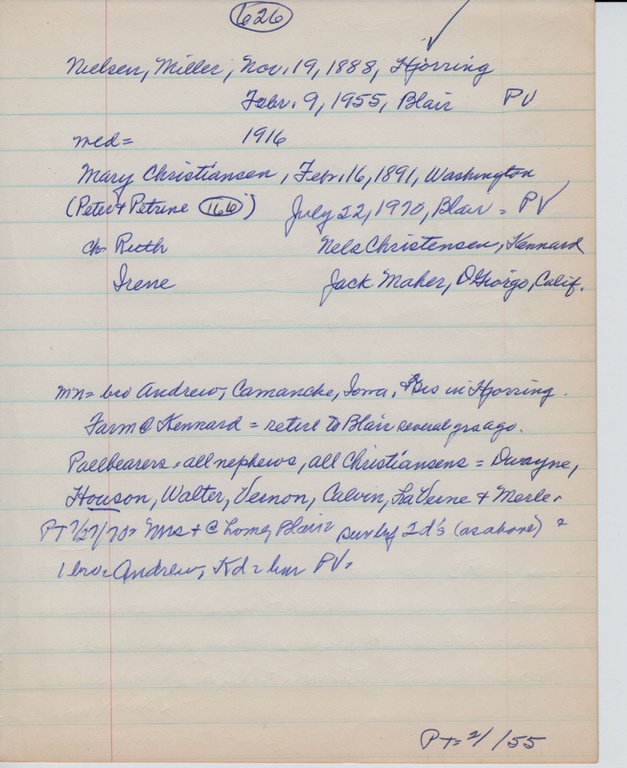 626
Nielsen, Miller, Nov. 19, 1888, Hjorring
Febr. 9, 1955, Blair PV
md= 1916
Mary Christiansen, Febr. 16, 1891, Washington
(Peter + Petrine 166) July 22, 1970, Blair = PV
ch- Ruth Nels Christensen, Kennard
Irene Jack Maher, DGiorgo, Calif.
mn= bro Andrew, Camanche, Iowa, in Hjorring.
Farm @ Kennard = retire to Blair several yrs ago.
Paelbearers = all nephews, all Christiansens = Dwayne,
Houson, Walter, Vernon, Calvin, LaVerne + Merle.
PT 7/27/70= Mrs + @ home, Blair surv by 2 d's (as above) +
1 bro= Andrew, Kd = bur PV.
PT= 2/ /55